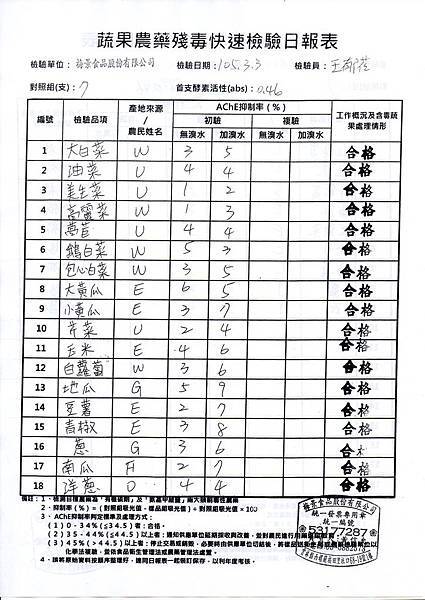 蔬果農藥殘毒快速檢驗日報表
檢驗單位：梅景食品股份有限公司 檢驗日期：105.3.3 檢驗員：王
對照組(支)：7 首支酵素活性(abs)：0.46
編號 檢驗品項 產地來源/農民姓名 AChE抑制率（%） 工作概況及含毒蔬果處理情形
初驗 複驗
無溴水 加溴水 無溴水 加溴水
1 大白菜 W 3 5 合格
2 油菜 U 4 4 合格
3 美生菜 U 1 2 合格
4 高麗菜 W 1 3 合格
5 萵苣 U 4 4 合格
6 鵝白菜 W 5 3 合格
7 包心白菜 W 3 5 合格
8 大黃瓜 E 6 5 合格
9 小黃瓜 E 3 7 合格
10 芹菜 U 2 4 合格
11 玉米 E 4 6 合格
12 白蘿蔔 W 3 6 合格
13 地瓜 G 5 9 合格
14 豆薯 E 2 7 合格
15 青椒 E 3 8 合格
16 蔥 G 3 6 合格
17 南瓜 F 2 7 合格
18 洋蔥 D 4 4 合格
備註：1、檢測目標農藥為「有機磷劑」及「氨基甲酸鹽」兩大類劇毒性農藥
2、抑制率（%）=（對照組吸光值－樣品組吸光值）÷對照組吸光值×100
3、AChE抑制率判定標準及處理方式：
(1) 0－34%(≦34.5)者：合格。
(2) 35－44%(≦44.5)者：通知供應單位延期採收與改善，並對農民進行用藥
(3) 45%(＞44.5)以上者：停止交易或銷毀，必要時由供應單位切結後，
化學複驗，並依食品衛生管理法或農藥管理法處置。
4、請將原始資料按順序整理好，連同日報表一起裝訂保存，以利年度考核。
梅景食品股份有限公司
統一發票專用章
統一編號
53177287